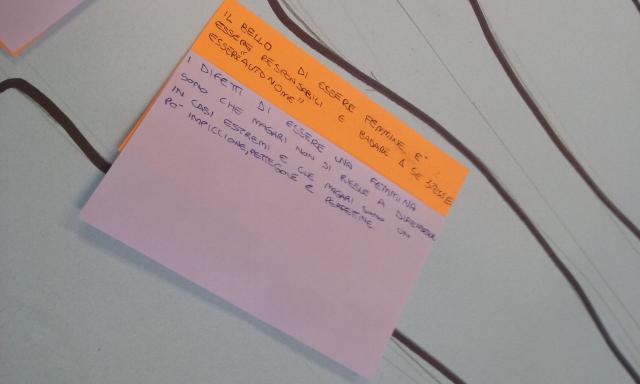 IL BELLO DI ESSERE FEMMINE, E'
ESSERE RESPONSABILI E BADARE A SE STESSE
ESSERE "AUTONOME"
I DIFETTI DI ESSERE UNA FEMMINA
SONO CHE MAGARI NON SI RIESCE A DIFENDERSI
IN CASI ESTREMI E CHE MAGARI SONO UN
PO' IMPICCIONE, PETTEGOLE E PERFETTINE